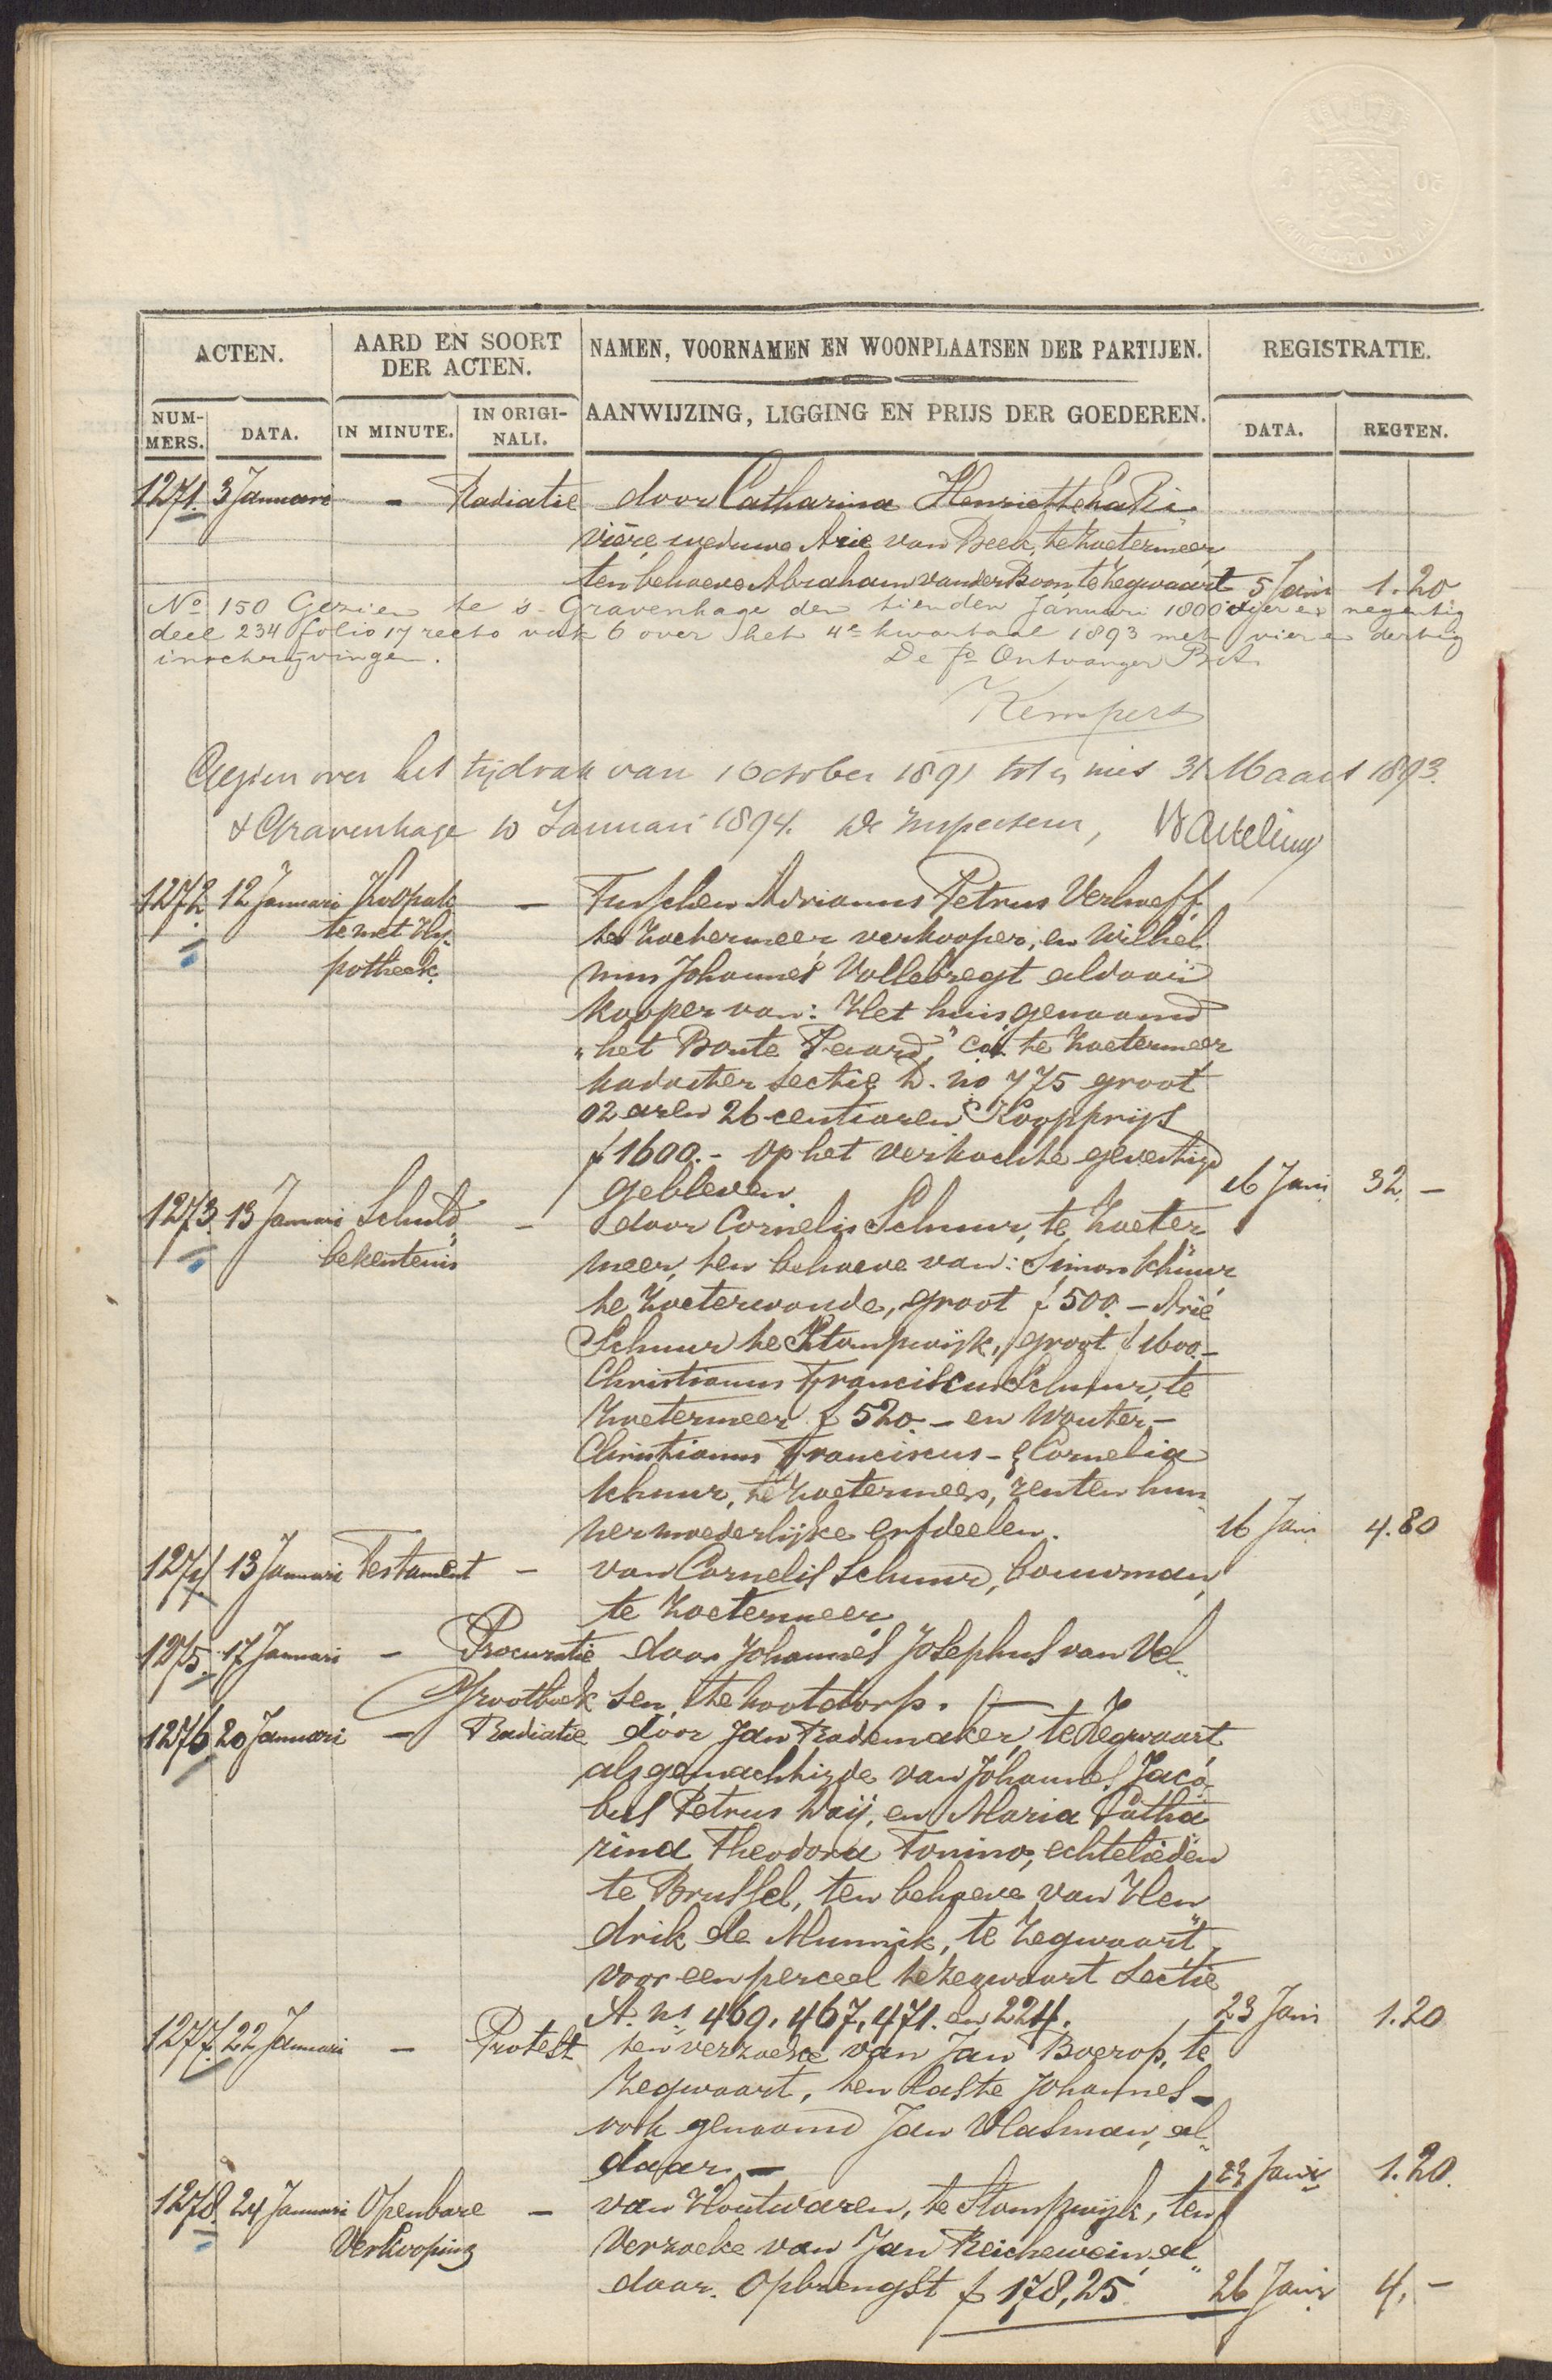 ACTEN.
AARD EN SOORT
DER ACTEN.
NAMEN, VOORNAMEN EN WOONPLAATSEN DER PARTIJEN.
REGISTRATIE.
NUM-
MERS.
DATA.
IN MINUTE.
IN ORIGI-
NALI.
AANWIJZING, LIGGING EN PRIJS DER GOEDEREN.
DATA.
REGTEN.
1271. 3 Januari - Radiatie door Catharina Henriette La Ri„
vière weduwe Arie van Beek, te Zoetermeer,
ten behoeve Abraham van der Boon te Zegwaart 5 Jani 1.20
No 150 Gezien te 's Gravenhage den tienden Januari 1800 vier en negentig
deel 234 folio 17 recto vak 6 over het 4e kwartaal 1893 met vier en dertig
inschrijvingen. De Ontvanger
Kempers
Gezien over het tijdvak van 1 October 1891 tot en met 31 Maart 1893.
s Gravenhage 10 Januari 1894. De Inspecteur,
1272. 12 Januari Koopak - Tusschen Adrianus Petrus Verhoeff
te met Hy„ te Zoetermeer verkooper, en Wilhel
potheek. mus Johannes Vollebregt aldaar
kooper van: Het huis, genaamd
„het Bonte Paard," c.a. te Zoetermeer
kadaster sectie D. no 775 groot
02 aren 26 centiaren Koopprijs
f 1600.- op het verkochte gevestigd
gebleven. 16 Jani 32.-
1273. 13 Januari Schuld„ - door Cornelis Schuur, te Zoeter
bekentenis meer, ten behoeve van: Simon Schuur
te Zoeterwoude, groot f 500.- Arie
Schuur te Stompwijk, groot f 1600.-
Christianus Franciscus Schuur, te
Zoetermeer f 520.- en Wouter-
Christianus Franciscus- & Cornelia
Schuur, te Zoetermeer, renten hun„
ner moederlijke erfdeelen. 16 Jani 4.80
1274. 13 Januari Testament - van Cornelis Schuur, bouwman,
te Zoetermeer
1275. 17 Januari - Procuratie door Johannes Josephus van Vel„
Grootboek sen, te Nootdorp.
1276 20 Januari - Radiatie door Jan Rademaker, te Zegwaart
als gemachtigde van Johannes Jaco„
bus Petrus Waij, en Maria Catha
rina Theodora Tonino, echtelieden
te Brussel, ten behoeve van Hen„
drik de Munnik, te Zegwaart,
voor een perceel te Zegwaart Sectie
A. ns 469, 467, 471. en 224. 23 Jani 1.20
1277. 22 Januari - Protest ten verzoeke van Jan Boerop, te
Zegwaart, ten laste Johannes-
ook genaamd Jan Vlasman, al„
daar. - 23 Jani 1.20.
1278. 24 Januari Openbare - van Houtwaren, te Stompwijk, ten
Verkooping verzoeke van Jan Reichewein, al„
daar. Opbrengst f 178,25. 26 Jani 4.-